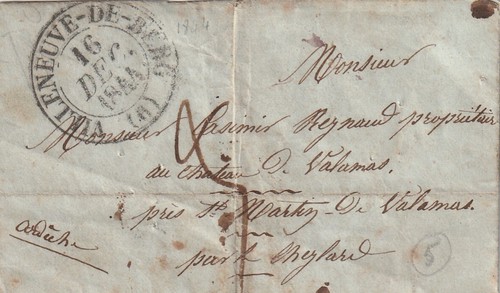 VILLENEUVE-DE-BERG (6)
16
DEC.
1844
1844
Monsieur
Monsieur Casimir Reynaud propriétaire
au château De Valamas.
près St Martin-De Valamas.
par le Cheylard
ardèche
5